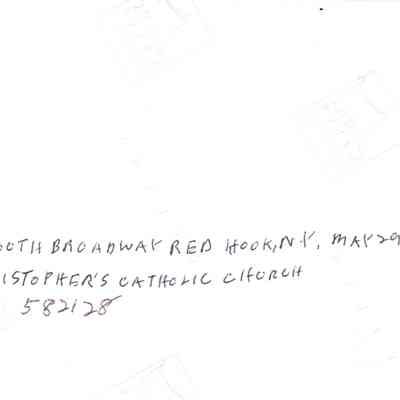 OUTH BROADWAY RED HOOK, N.Y, MAY 29
ISTOPHER'S CATHOLIC CHURCH
582128